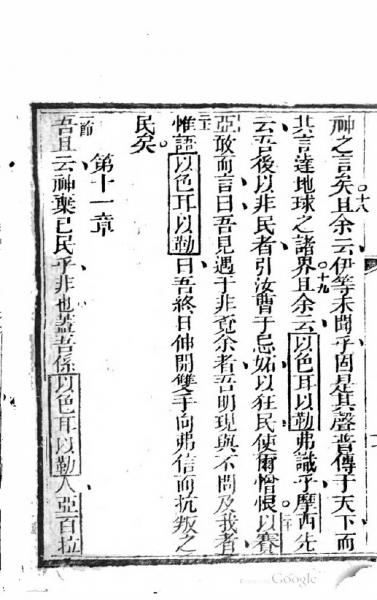 神之言矣○十八且余云伊等未聞乎固是其聲普傳于天下而
其言達地球之諸界○十九且余云以色耳以勒弗識乎摩西先
云吾後以非民者引汝曹于忌妬以狂民使爾憎恨○二十以賽
亞敢而言曰吾見遇于非覔余者吾明現與不問及我者
惟語以色耳以勒曰吾終日伸開雙手向弗信而抗叛之
民矣
第十一章
一節吾且云神棄己民乎非也蓋吾係以色耳以勒人亞百拉
Google